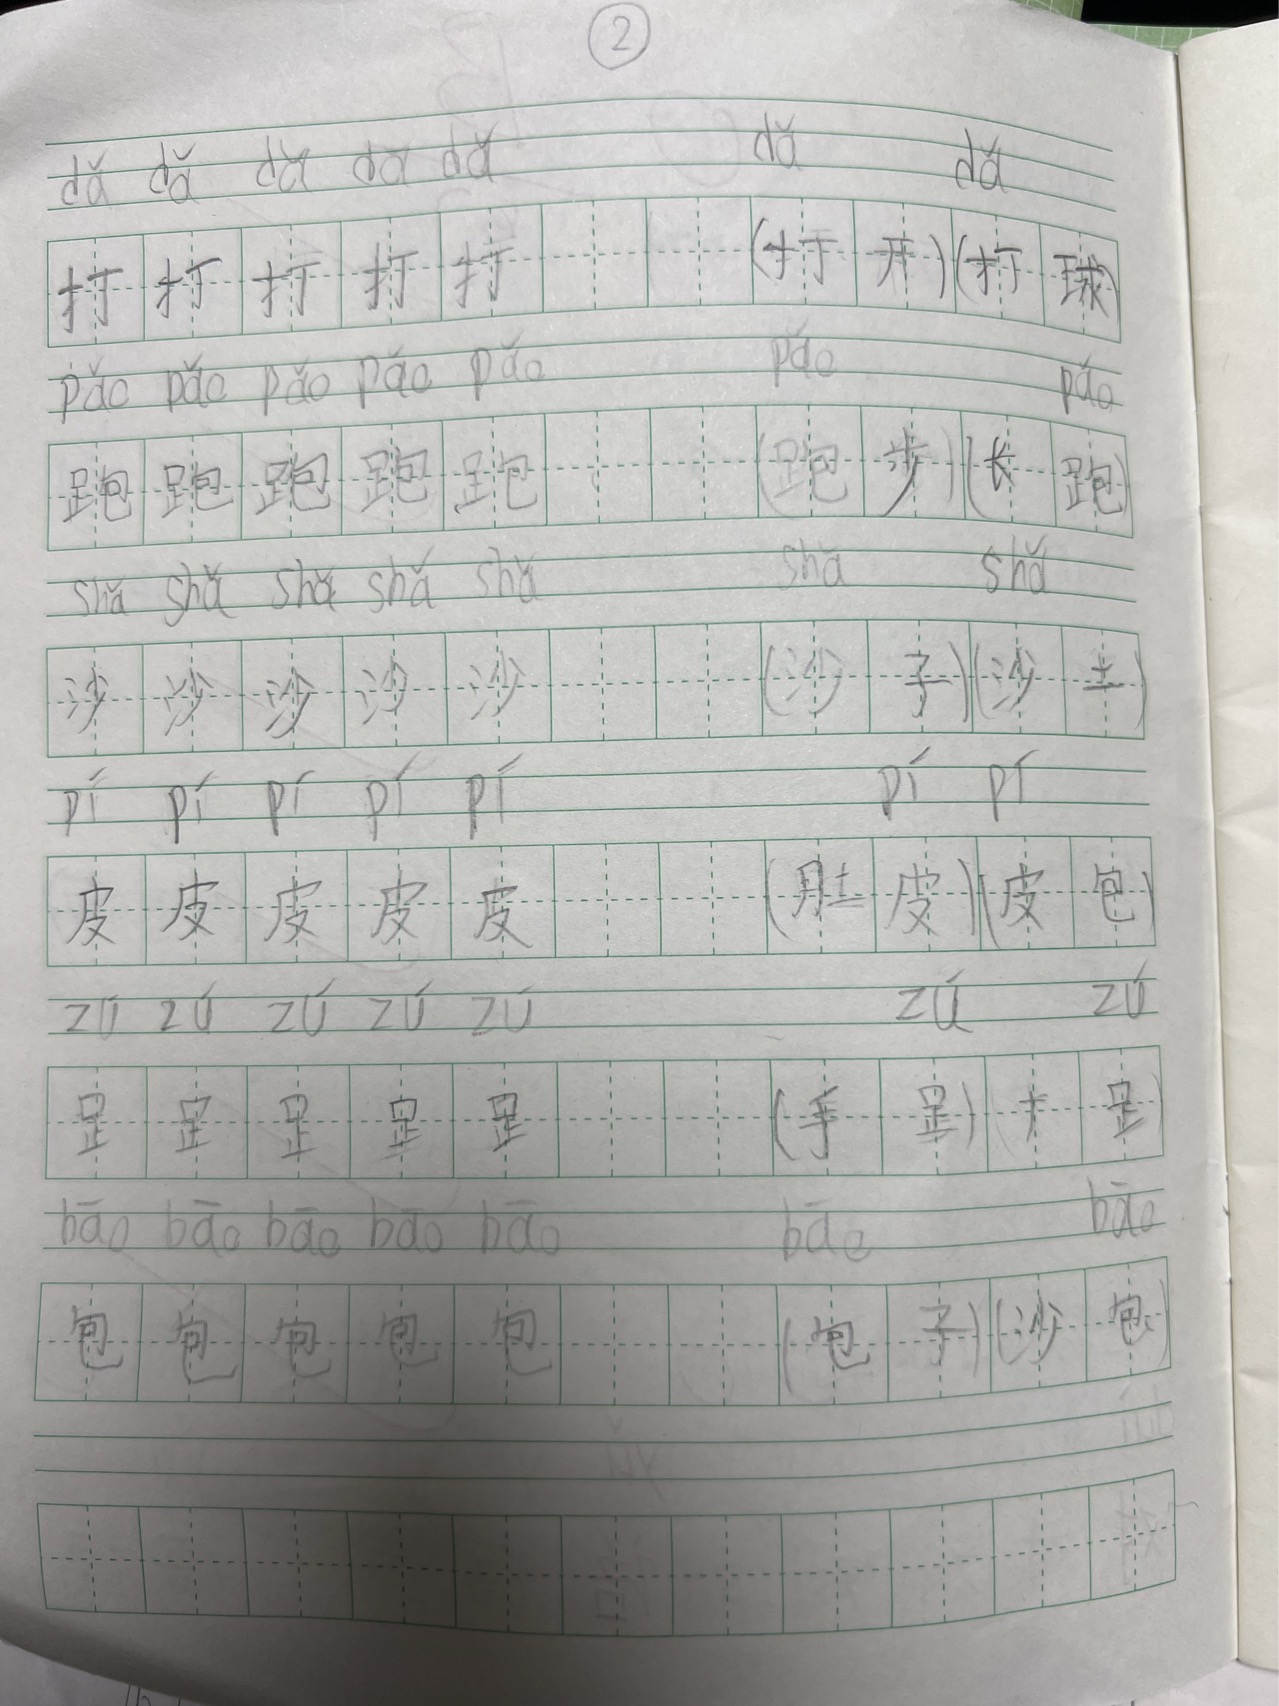 2
dǎ dǎ dǎ dǎ dǎ dǎ dǎ
打 打 打 打 打 (打 开) (打 球)
pǎo pǎo pǎo pǎo pǎo pǎo pǎo
跑 跑 跑 跑 跑 (跑 步) (长 跑)
shā shǎ shǎ shǎ shǎ shā shǎ
沙 沙 沙 沙 沙 (沙 子) (沙 土)
pí pí pí pí pí pí pí
皮 皮 皮 皮 皮 (肚 皮) (皮 包)
zú zú zú zú zú zú zú
足 足 足 足 足 (手 足) 足)
bāo bāo bāo bāo bāo bāo bāo
包 包 包 包 包 (包 子) (沙 包)